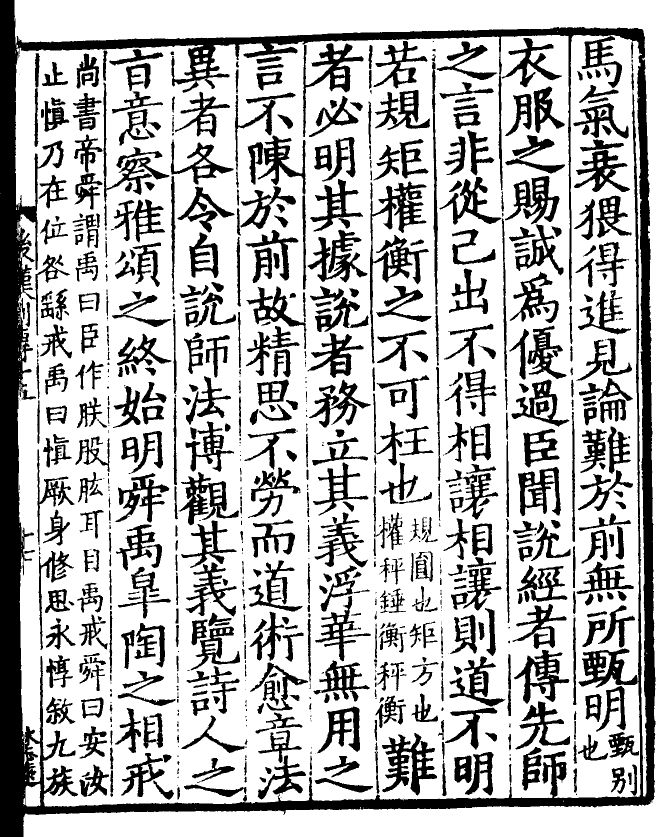 馬氣衰猥得進見論難於前無所甄明甄別也
衣服之賜誠爲優過臣聞說經者傳先師
之言非從己出不得相讓相讓則道不明
若規矩權衡之不可枉也規圓也矩方也權秤錘衡秤衡難
者必明其據說者務立其義浮華無用之
言不陳於前故精思不勞而道術愈章法
異者各令自說師法博觀其義覽詩人之
旨意察雅頌之終始明舜禹臯陶之相戒
尚書帝舜謂禹曰臣作朕股肱耳目禹戒舜曰安汝
止慎乃在位咎繇戒禹曰慎厥身修思永惇敘九族
後漢列傳十五
十七